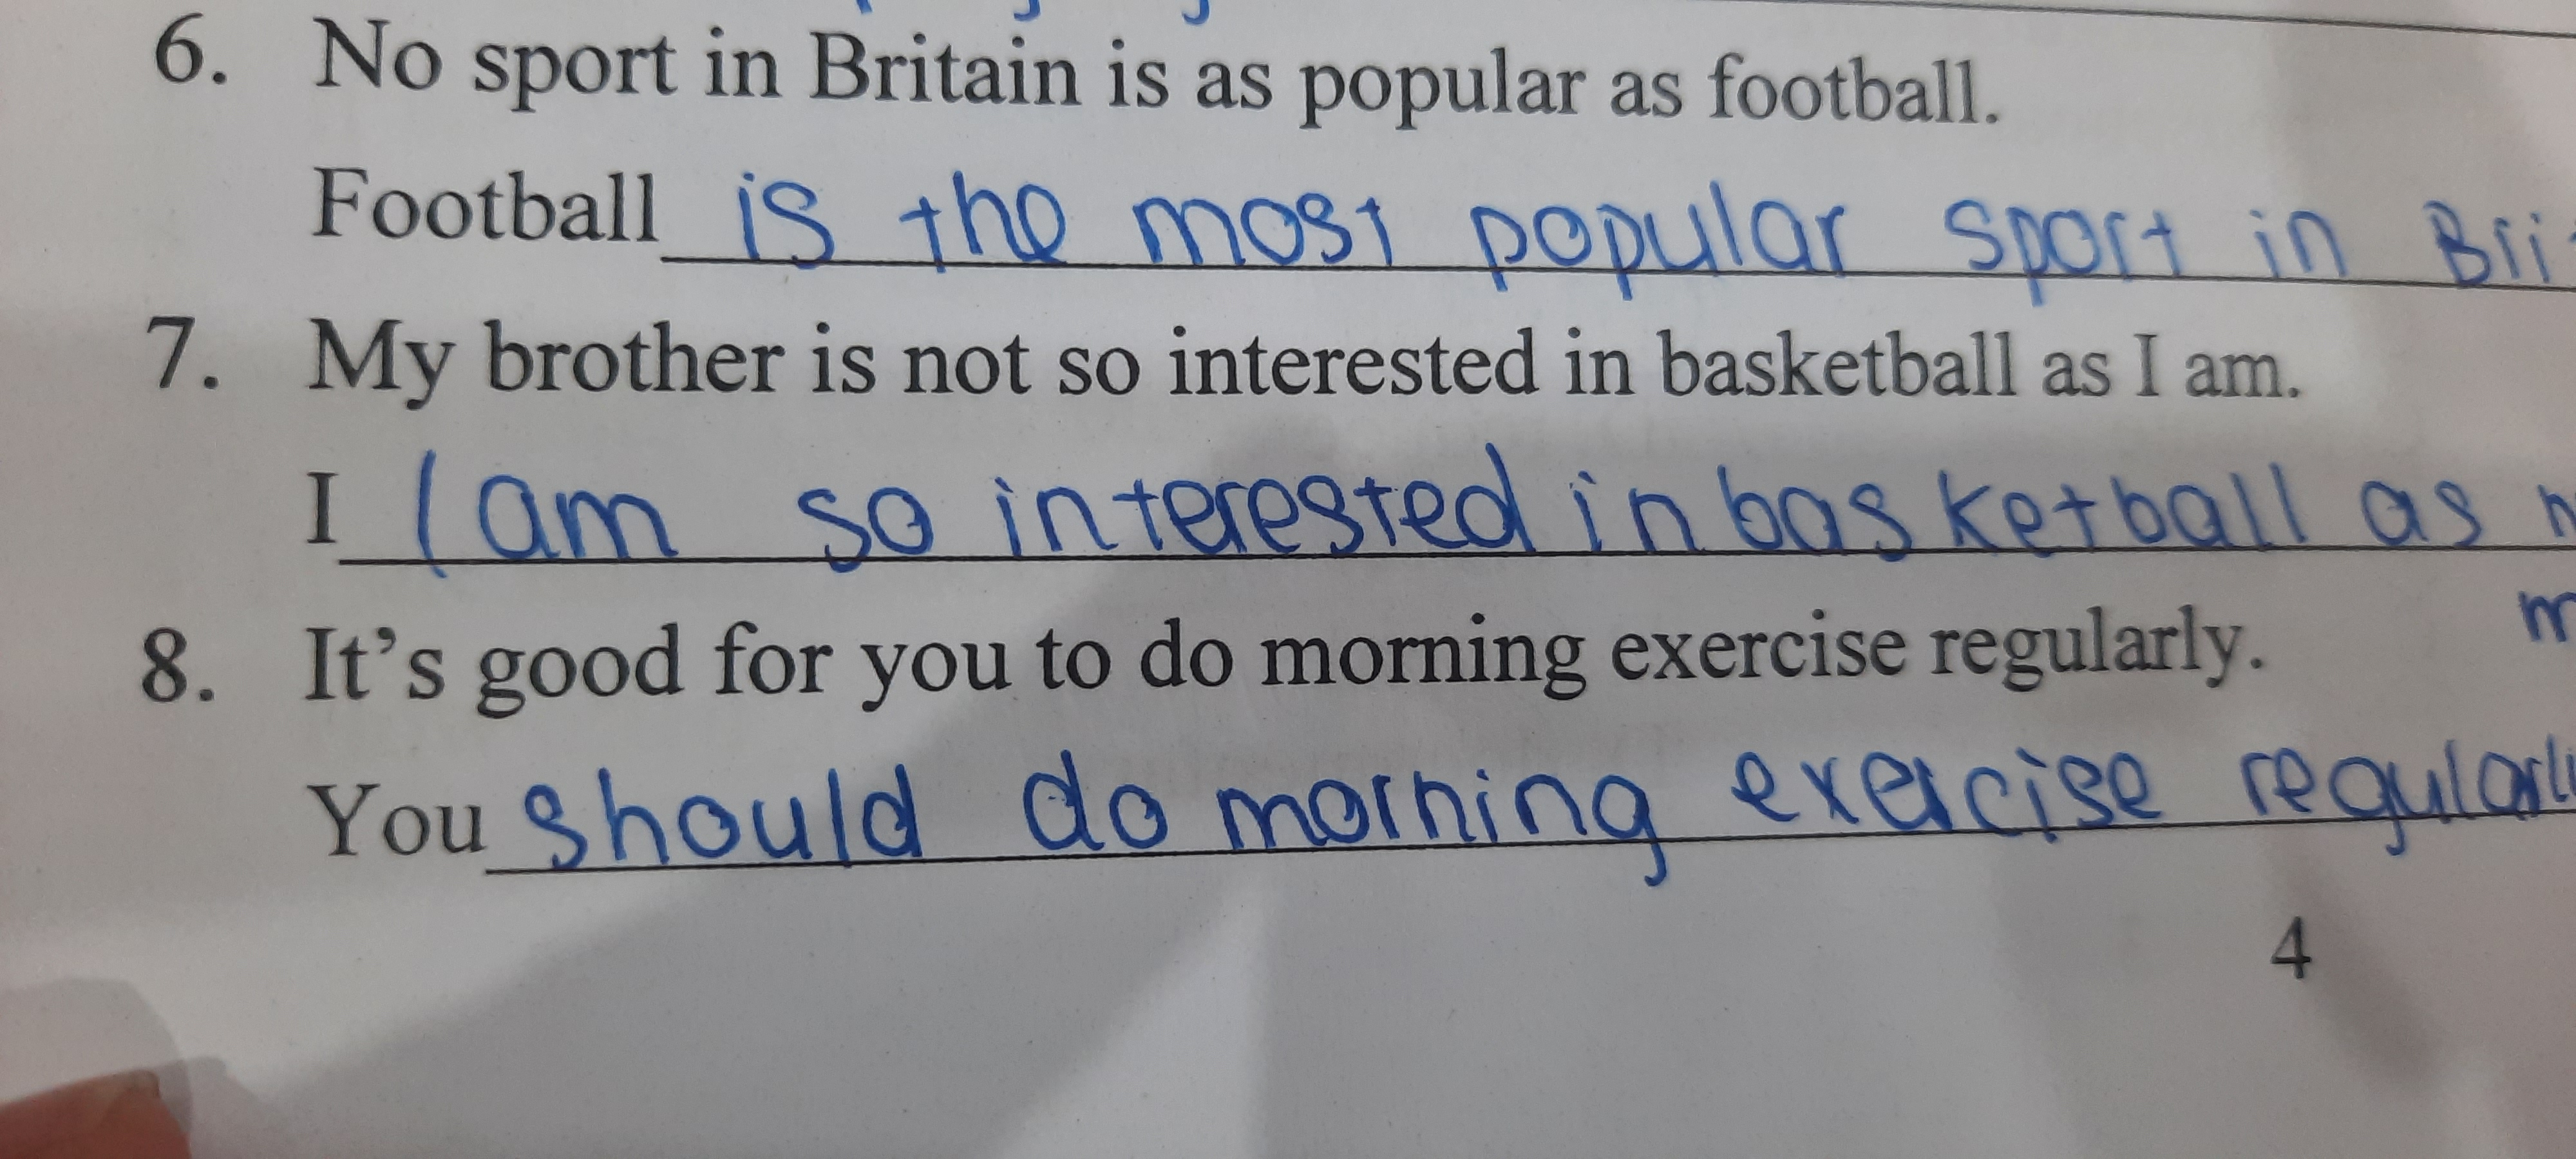 6. No sport in Britain is as popular as football.
Football is the most popular sport in Bri
7. My brother is not so interested in basketball as I am.
I I am so interested in basketball as
8. It's good for you to do morning exercise regularly.
You should do morning exercise regularly
4